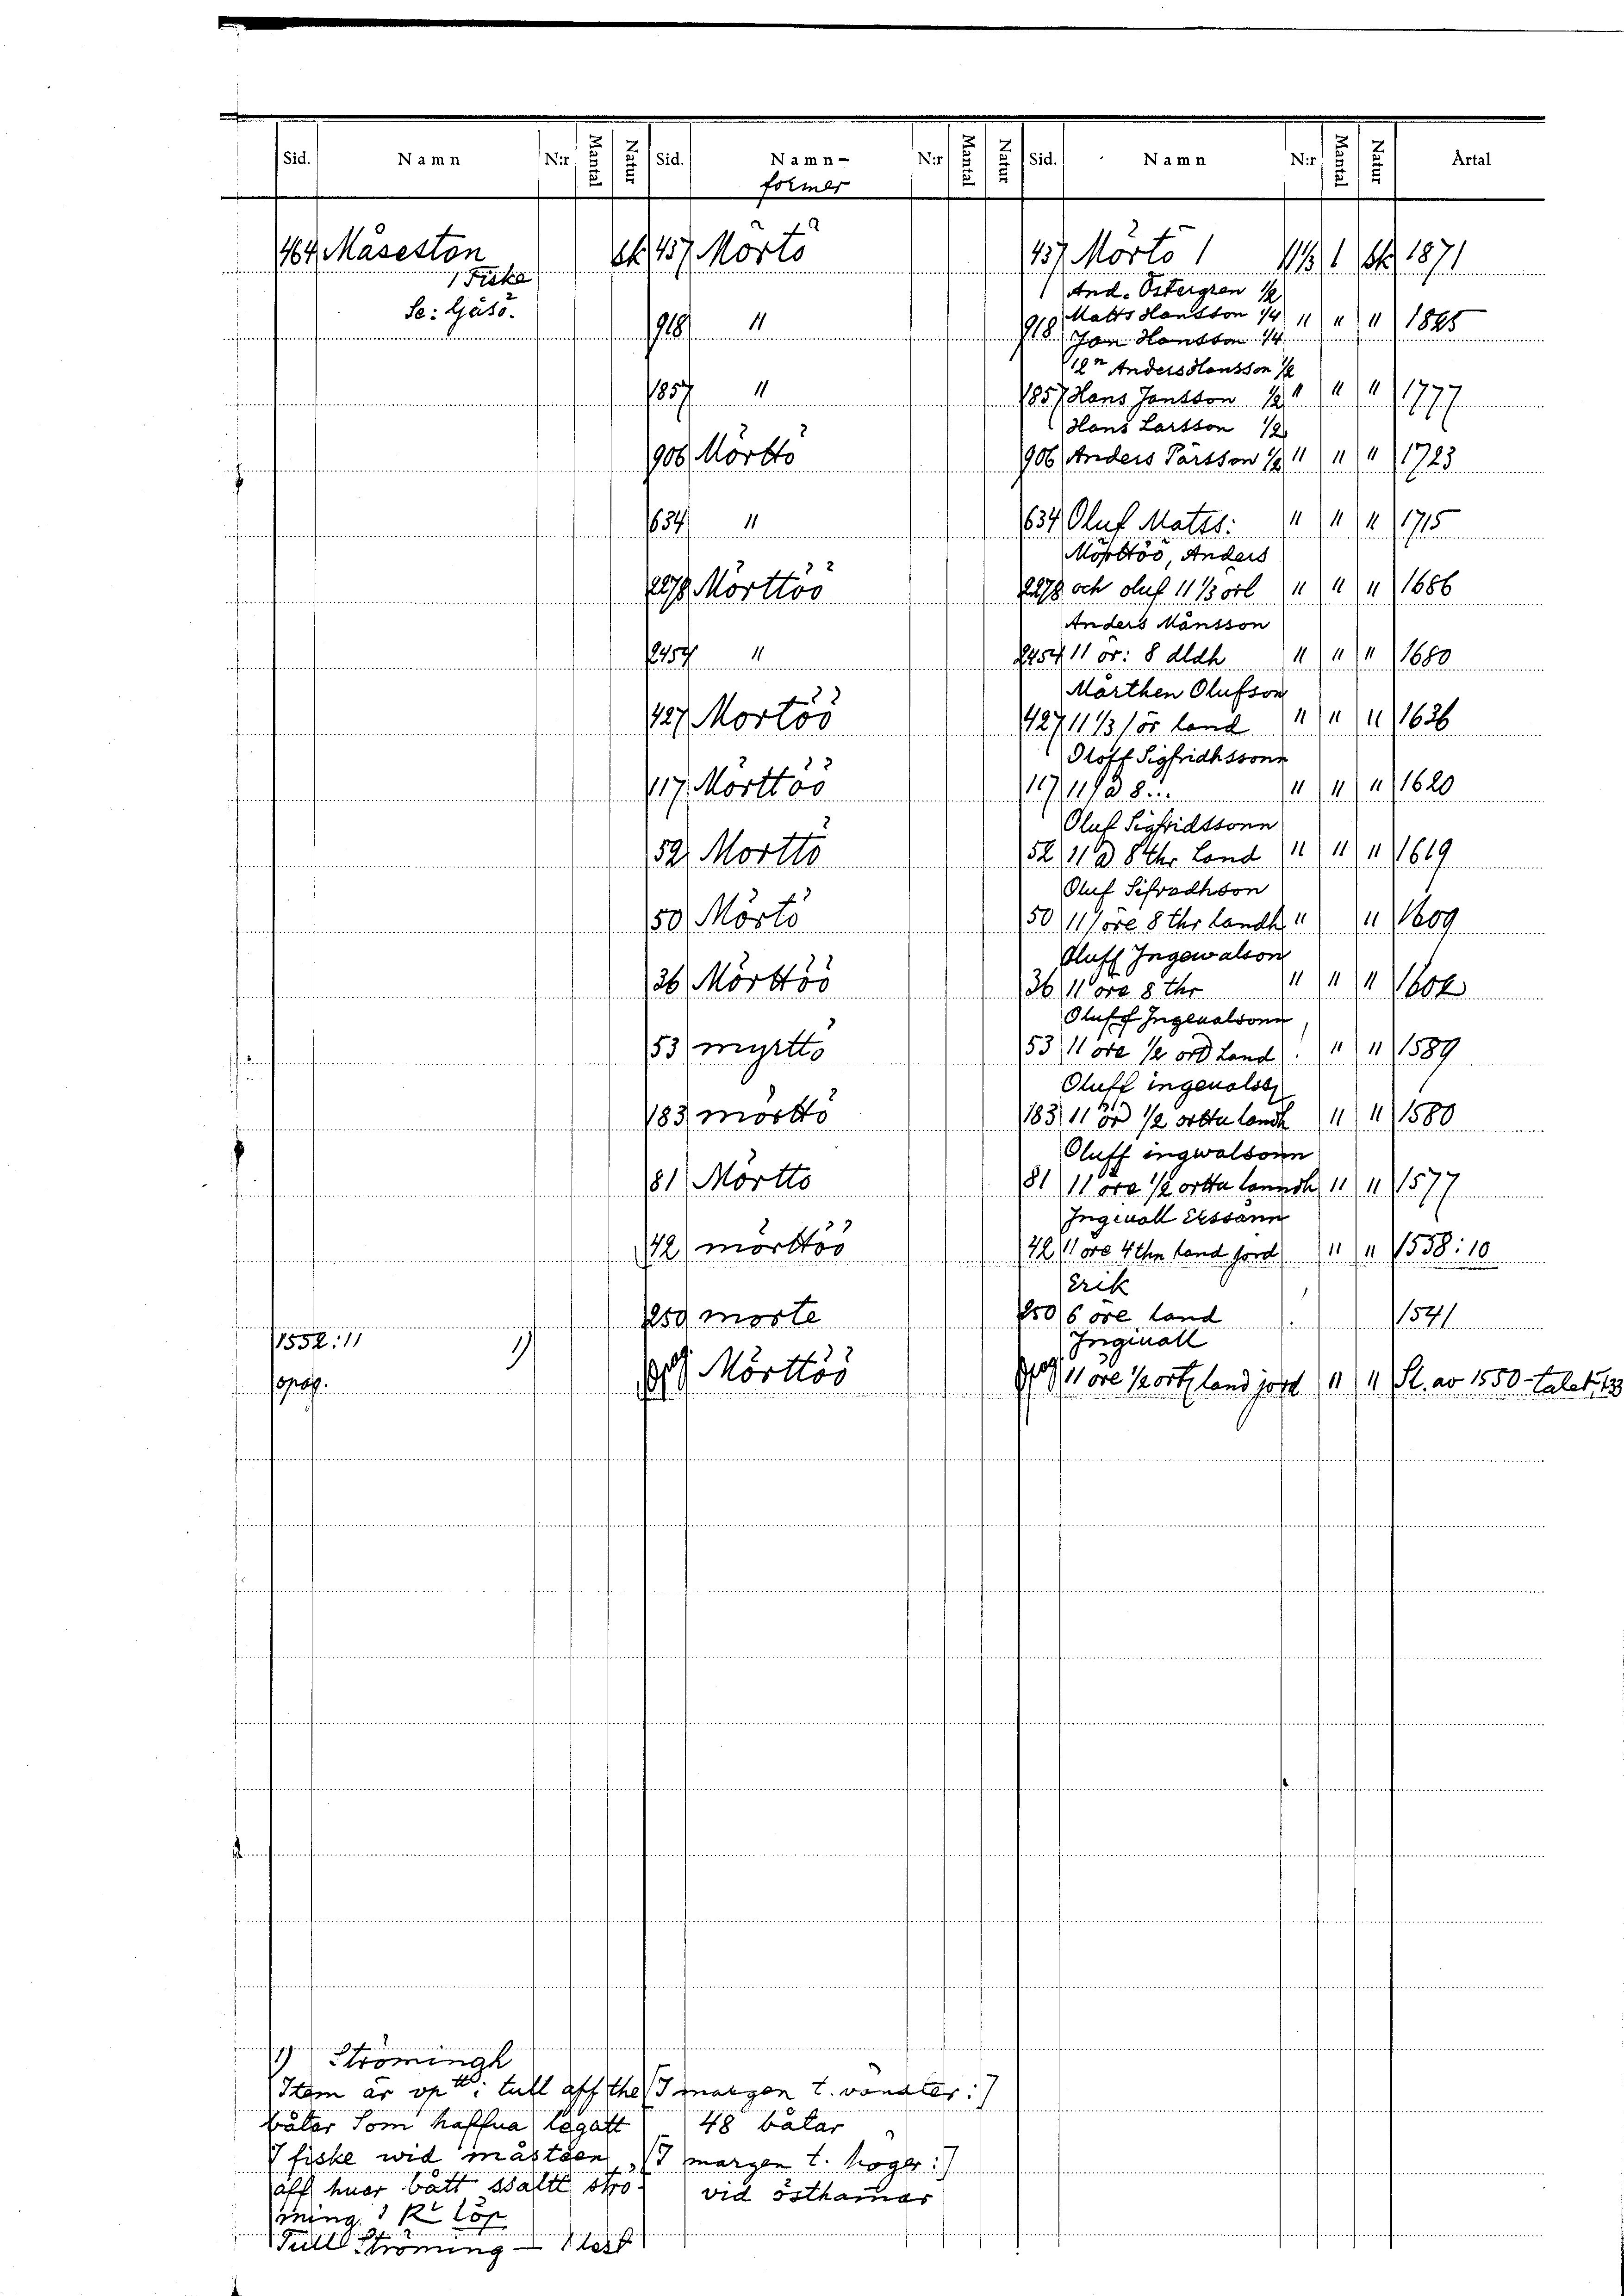 Sid. Namn N:r Mantal Natur Sid. Namn- N:r Mantal Natur Sid. Namn N:r Mantal Natur Årtal
former
464 Måsesten sk 457 Mörtö 457 Mörtö 1 11 1/3 1 Sk 1871
1 Fiske
Se: Gåsö.
And. Östergren 1/2
Matts Hansson 1/4
918 " 918 Jan Hansson 1/4 " " " 1825
Anders Hansson 1/2
1857 " 1857 Hans Jansson 1/2 " " " 1777
Hans Larsson 1/2
906 Mörttö 906 Anders Pärsson 1/2 " " " 1723
634 " 634 Oluf Matss: " " " 1715
Mörttöö, Anders
2278 Mörttöö 2278 och oluf 11 1/3 örl " " " 1686
Anders Månsson
2454 " 2454 11 ör: 8 dldh " " " 1680
Mårthen Olufson
427 Mörtöö 427 11 1/3 ör land " " " 1636
Oloff Sigfridhssonn
117 Mörttöö 117 " " " 1620
Oluf Sigfridssonn
52 Morttö 52 11 8 thr Land " " " 1619
Oluf Sifradhson
50 Mörtö 50 11 öre 8 thr landh " " 1609
Oluff Ingewalson
36 Mörttöö 36 11 öre 8 thr " " " 1602
Oluff Ingeualsonn
53 myrttö 53 11 öre 1/2 Land " " 1589
Oluff
183 mörttö 183 11 1/2 landh " " 1580
Oluff ingwalsonn
81 Mörttö 81 11 öre 1/2 " " 1577
Ingeuall
42 mörttöö 42 11 öre 4 thn land jord " " 1558:10
Erik
250 morte 250 6 öre land 1541
1552:11 1) Mörttöö Inginall
opag. opag. 11 öre land jord " " Sl. av 1550-talet,
1) Strömingh
Item är tull aff the /I margen t. vänster:/
båter Som haffua legatt 48 båtar
I fiske wid måsteen /I margen t. höger:/
aff huar bått ssaltt strö- vid östhamar
ming löp
Tull Ströming – 1 lest